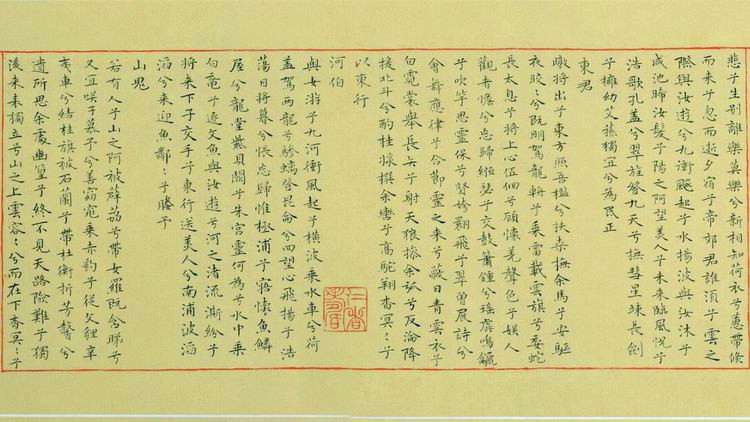 悲兮生別離樂莫樂兮新相知荷衣兮蕙帶倏
而來兮忽而逝夕宿兮帝郊君誰須兮雲之
際與汝遊兮九衝飈起兮水揚波與汝沐兮
咸池晞汝髮兮陽之阿望美人兮未来臨風怳兮
浩歌孔蓋兮翠旍登九天兮撫彗星竦長劍
兮擁幼艾蓀獨宜兮為民正
東君
暾將出兮東方照吾檻兮扶桑撫余馬兮安驅
衣皎〻兮既明駕龍輈兮乘雷載雲旗兮委蛇
長太息兮將上心低佪兮顧懷羌聲色兮娛人
觀者憺兮忘歸縆瑟兮交鼓簫鍾兮瑤簴鳴鱺
兮吹竽思靈保兮賢姱翾飛兮翠曾展詩兮
會舞應律兮合節靈之来兮蔽日青雲衣兮
白霓裳舉長矢兮射天狼操余弧兮反淪降
援北斗兮酌桂漿撰余轡兮高駝翔杳冥〻兮
以東行
河伯
與女游兮九河衝風起兮橫波乘水車兮荷
蓋駕兩龍兮驂螭登昆侖兮四望心飛揚兮浩
蕩日將暮兮悵忘歸惟極浦兮寤懷魚鱗
屋兮龍堂紫貝闕兮朱宮靈何為兮水中乘
白黿兮逐文魚與汝遊兮河之渚流澌紛兮
將来下子交手兮東行送美人兮南浦波滔
滔兮来迎魚鄰〻兮媵予
山鬼
若有人兮山之阿被薜荔兮帶女蘿既含睇兮
又宜咲子慕予兮善窈窕乘赤豹兮從文貍辛
夷車兮結桂旗被石蘭兮帶杜衡折芳馨兮
遺所思余處幽篁兮終不見天路險難兮獨
後来表獨立兮山之上雲容〻兮而在下杳冥〻兮